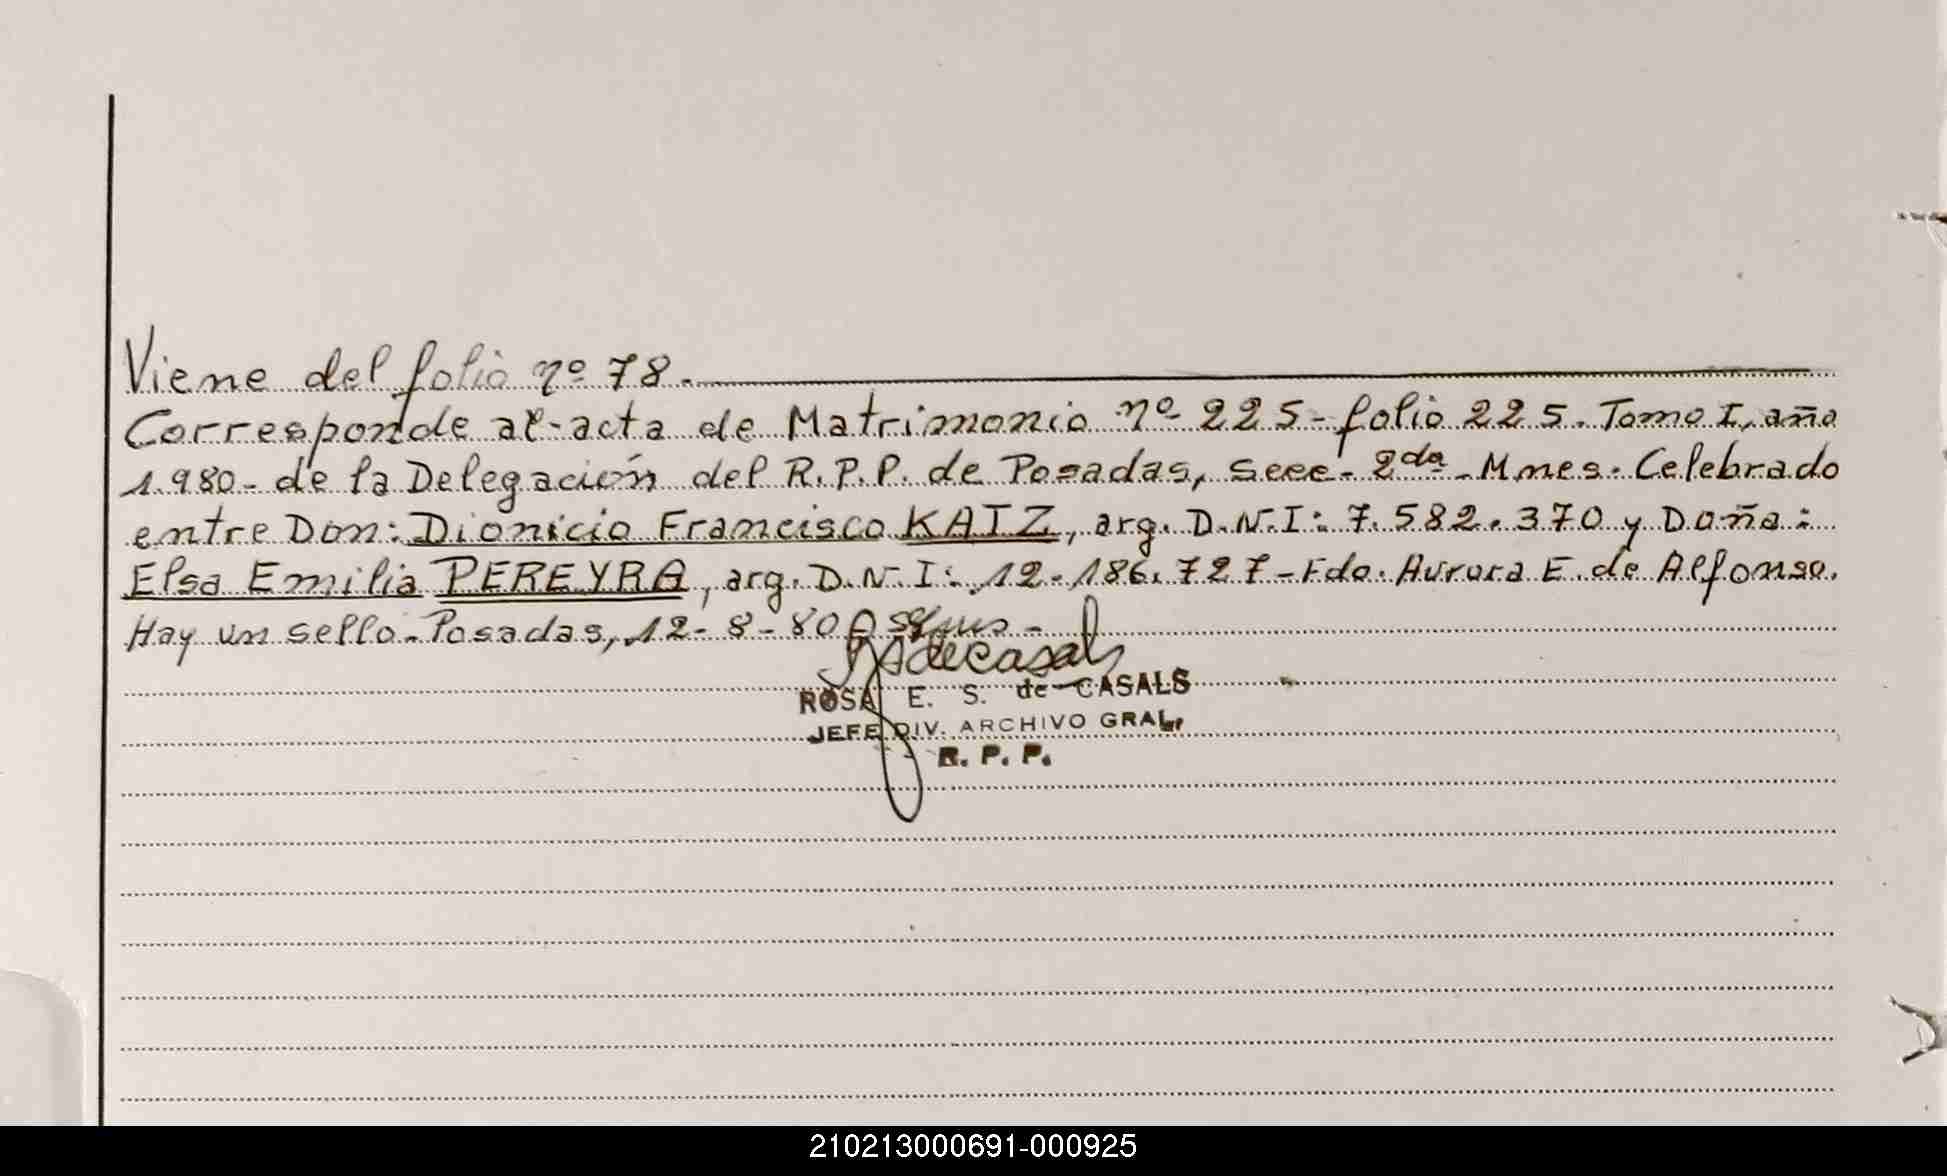 Viene del folio nº 78.
Corresponde al-acta de Matrimonio nº 225-folio 225. Tomo I, año
1.980- de la Delegación del R.P.P. de Posadas, Secc- 2da- Mnes. Celebrado
entre Don: Dionicio Francisco KAIZ, arg. D.N.I: 7.582.370 y Doña:
Elsa Emilia PEREYRA, arg. D.N.I: 12.186.727-Fdo. Aurora E. de Alfonso.
Hay un sello. Posadas, 12-8-80
ROSA E. S. de CASALS
JEFE DIV. ARCHIVO GRAL.
R. P. P.
210213000691-000925